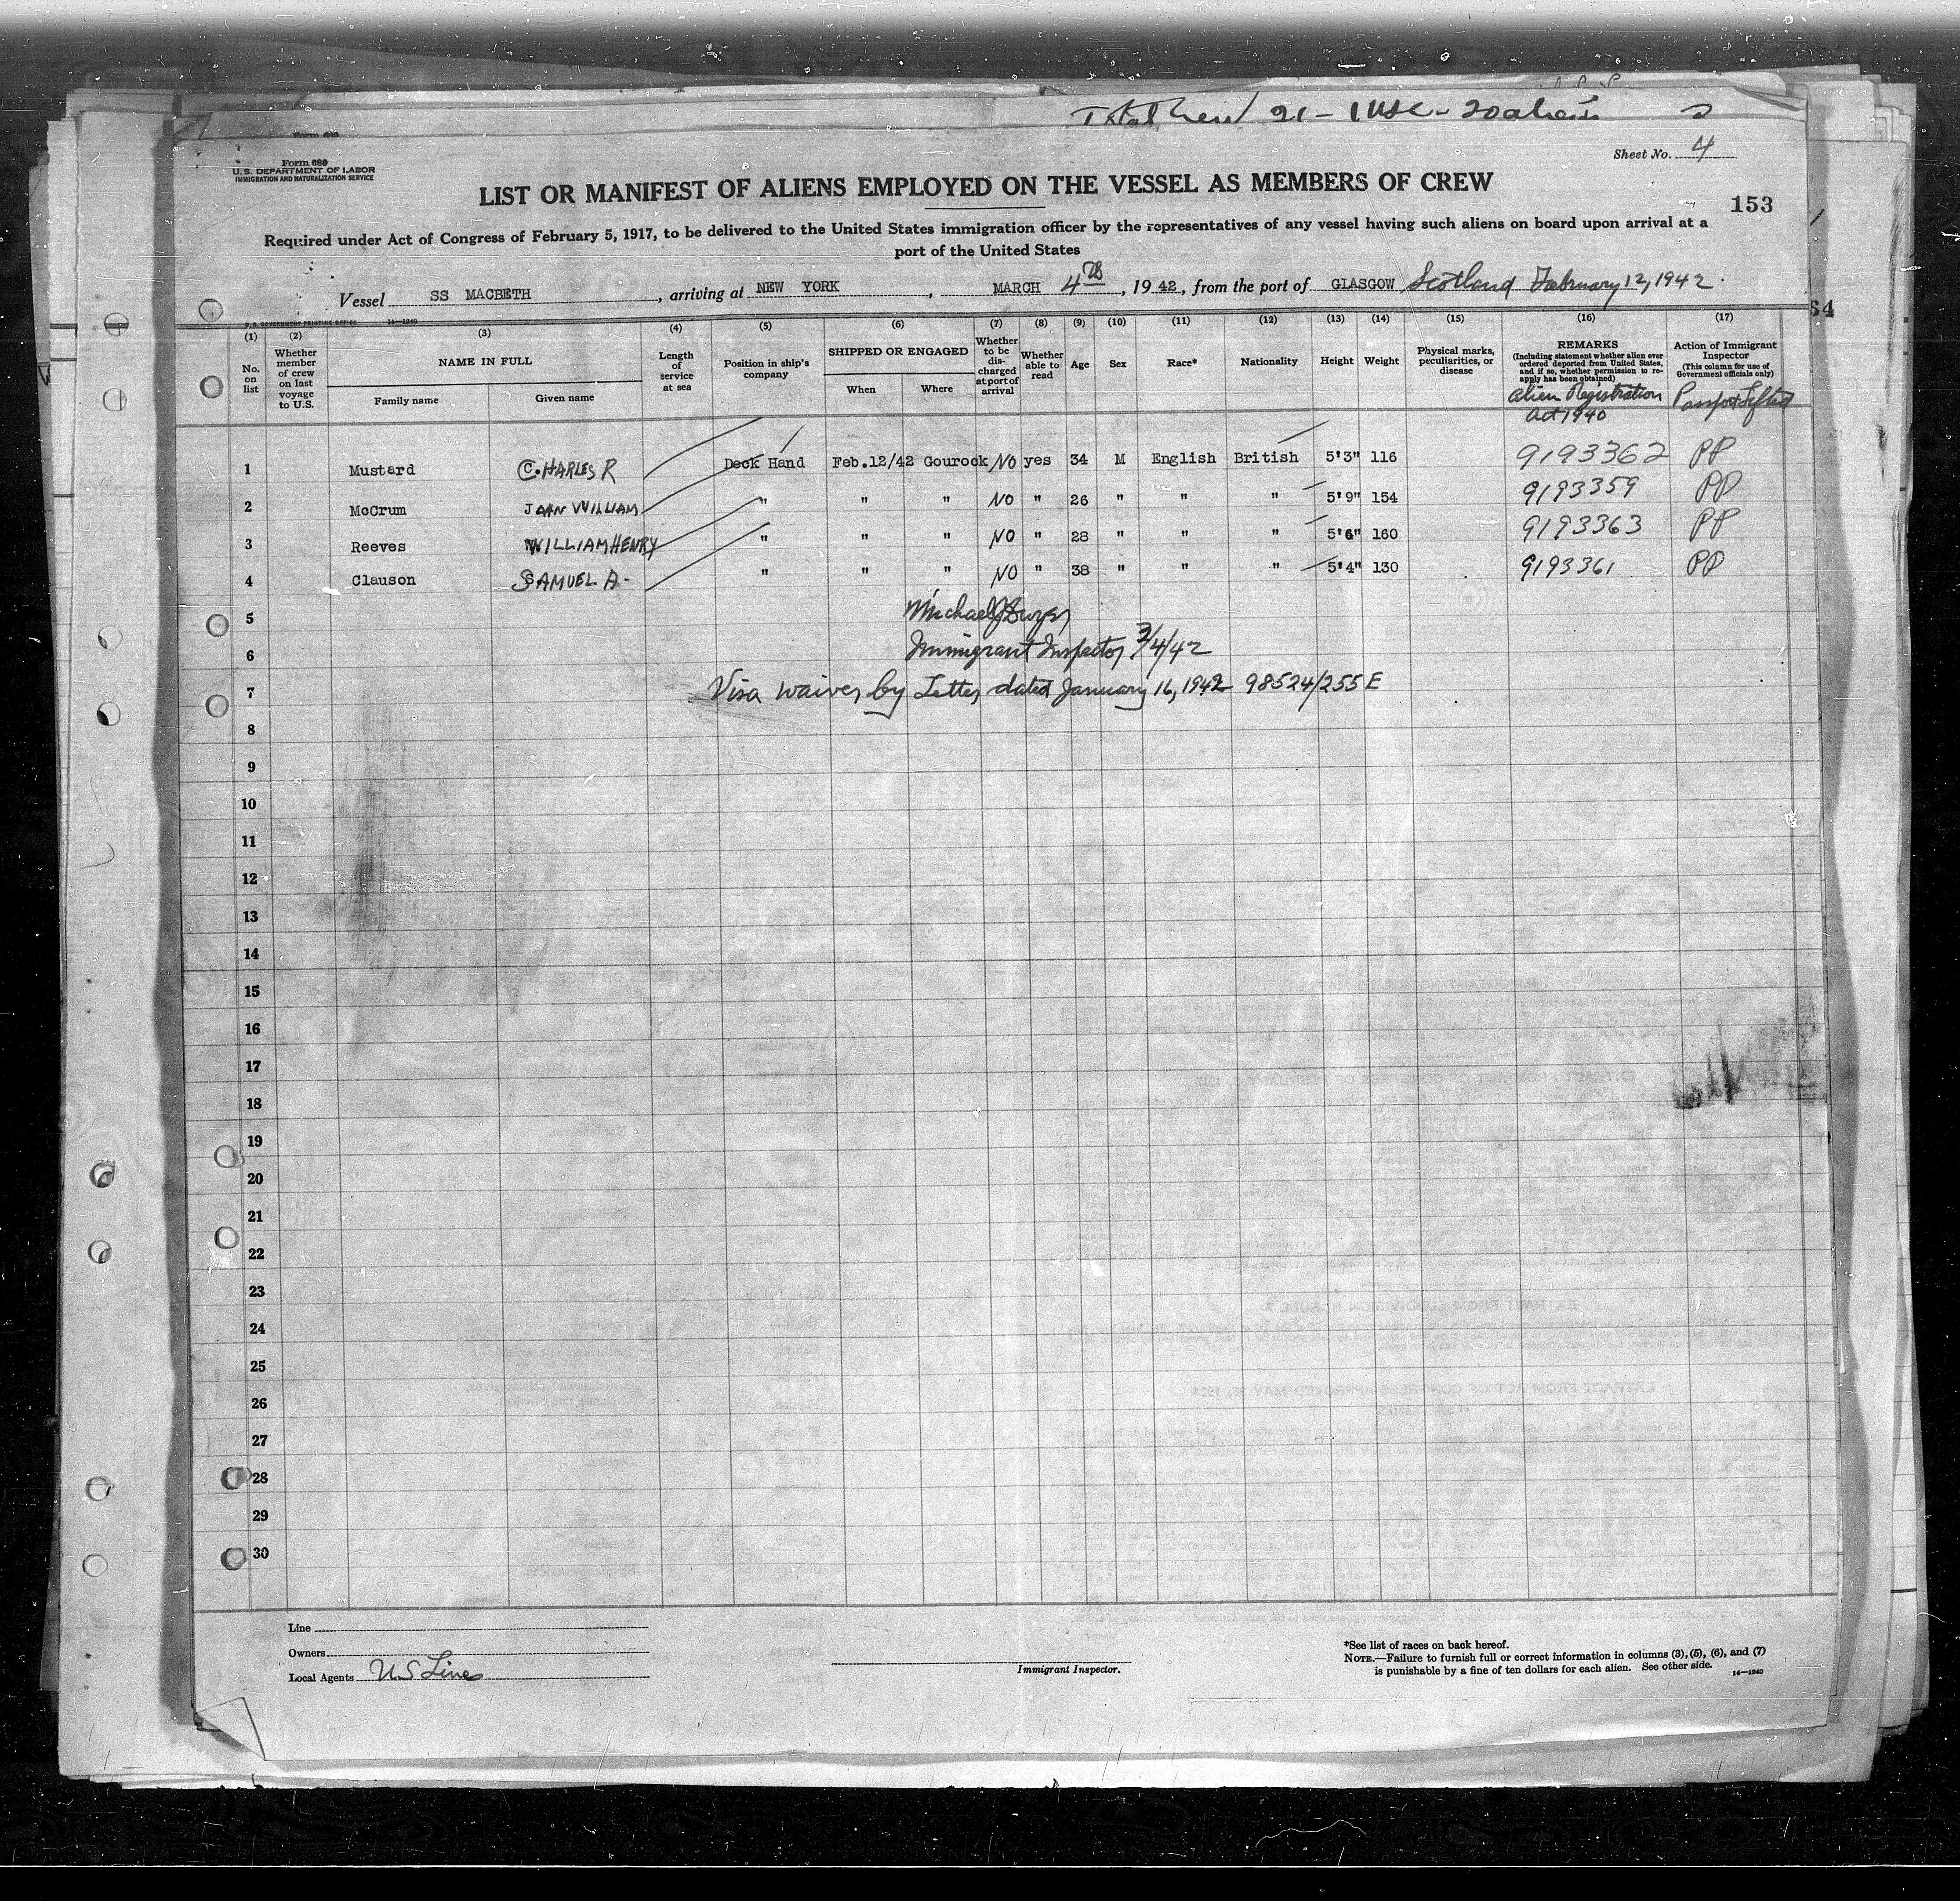 Total Crew 21 - 1 USC - 20 aliens
Form 680
U.S. DEPARTMENT OF LABOR
IMMIGRATION AND NATURALIZATION SERVICE
Sheet No. 4
LIST OR MANIFEST OF ALIENS EMPLOYED ON THE VESSEL AS MEMBERS OF CREW
153
Required under Act of Congress of February 5, 1917, to be delivered to the United States immigration officer by the representatives of any vessel having such aliens on board upon arrival at a
port of the United States
Vessel SS MACBETH, arriving at NEW YORK, MARCH 4th, 1942, from the port of GLASGOW Scotland February 12, 1942.
64
U.S. GOVERNMENT PRINTING OFFICE 14-1240
(1) (2) (3) (4) (5) (6) (7) (8) (9) (10) (11) (12) (13) (14) (15) (16) (17)
No. on list
Whether member of crew on last voyage to U.S.
NAME IN FULL
Family name
Given name
Length of service at sea
Position in ship's company
SHIPPED OR ENGAGED
When
Where
Whether to be discharged at port of arrival
Whether able to read
Age
Sex
Race*
Nationality
Height
Weight
Physical marks, peculiarities, or disease
REMARKS
(Including statement whether alien ever ordered deported from United States, and if so, whether permission to re-apply has been obtained)
Alien Registration
Act 1940
Action of Immigrant Inspector
(This column for use of Government officials only)
Passport Lifted
1 Mustard CHARLES R Deck Hand Feb.12/42 Gourock NO yes 34 M English British 5'3" 116 9193362 PP
2 McCrum JOHN WILLIAM " " " NO " 26 " " " 5'9" 154 9193359 PP
3 Reeves WILLIAM HENRY " " " NO " 28 " " " 5'6" 160 9193363 PP
4 Clauson SAMUEL A. " " " NO " 38 " " " 5'4" 130 9193361 PP
5 Michael J Dwyer
6 Immigrant Inspector 3/4/42
7 Visa waiver by Letter dated January 16, 1942 98524/255 E
8
9
10
11
12
13
14
15
16
17
18
19
20
21
22
23
24
25
26
27
28
29
30
Line
Owners
Local Agents US Lines
Immigrant Inspector.
*See list of races on back hereof.
NOTE.—Failure to furnish full or correct information in columns (3), (5), (6), and (7)
is punishable by a fine of ten dollars for each alien. See other side. 14-1240